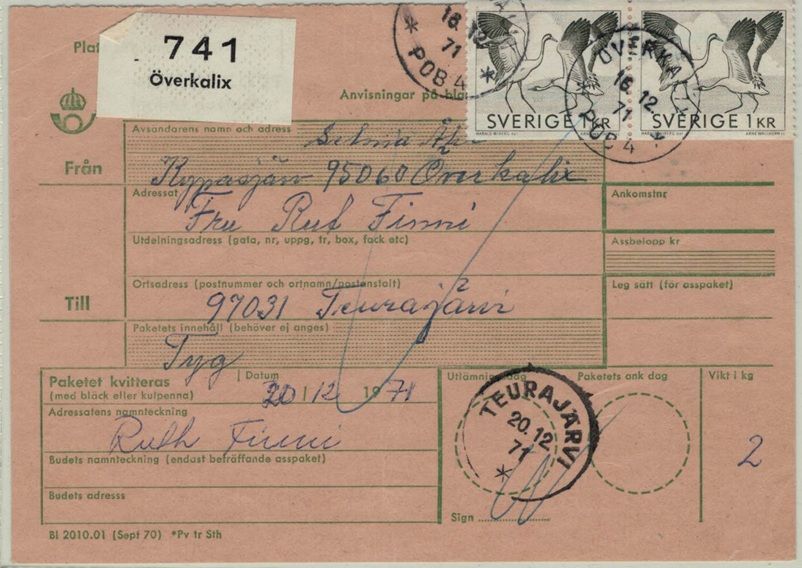 741
Överkalix
Anvisningar på
18.12
71
POB 4
SVERIGE 1KR
ÖVERKA
16.12
71
POB 4
SVERIGE 1KR
Från
Avsändarens namn och adress
Selma
Kypasjärv 95060 Överkalix
Adressat
Fru Rut Finni
Ankomstnr
Utdelningsadress (gata, nr, uppg, tr, box, fack etc)
Assbelopp kr
Till
Ortsadress (postnummer och ortnamn/postanstalt)
Leg satt (för asspaket)
97031 Teurajärvi
Paketets innehåll (behöver ej anges)
Tyg
Paketet kvitteras
(med bläck eller kulpenna)
Datum
20/12 1971
Utlämningsdag
Paketets ank dag
Vikt i kg
Adressatens namnteckning
Ruth Finni
TEURAJÄRVI
20.12
71
2
Budets namnteckning (endast beträffande asspaket)
Budets adresss
Sign
Bl 2010.01 (Sept 70) *Pv tr Sth